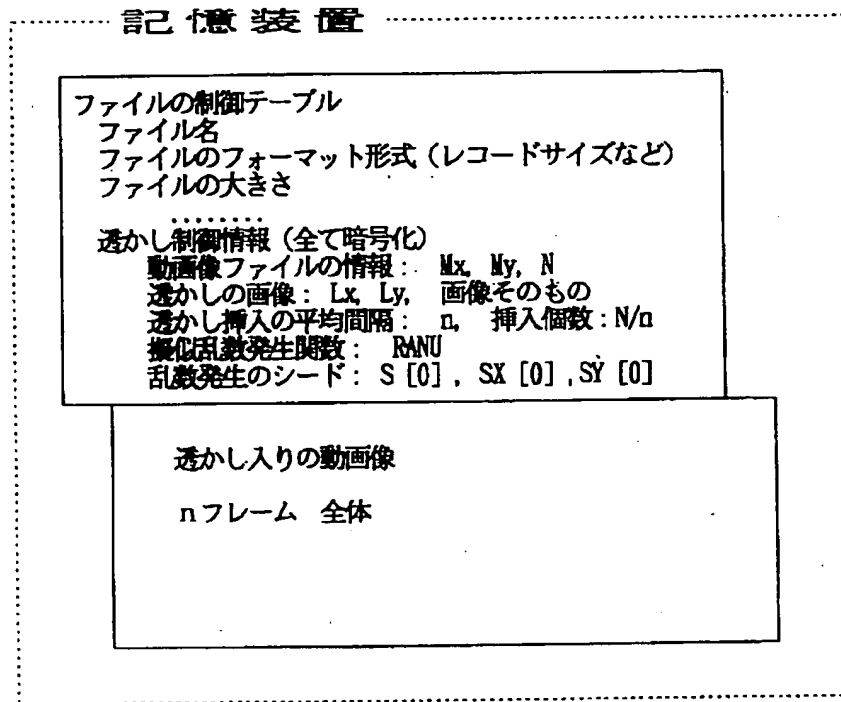 記憶装置
ファイルの制御テーブル
ファイル名
ファイルのフォーマット形式（レコードサイズなど）
ファイルの大きさ
........
透かし制御情報（全て暗号化）
動画像ファイルの情報： Mx, My, N
透かしの画像：Lx, Ly, 画像そのもの
透かし挿入の平均間隔： n, 挿入個数：N/n
擬似乱数発生関数： RANU
乱数発生のシード：S [0] , SX [0] ,SY [0]
透かし入りの動画像
nフレーム 全体